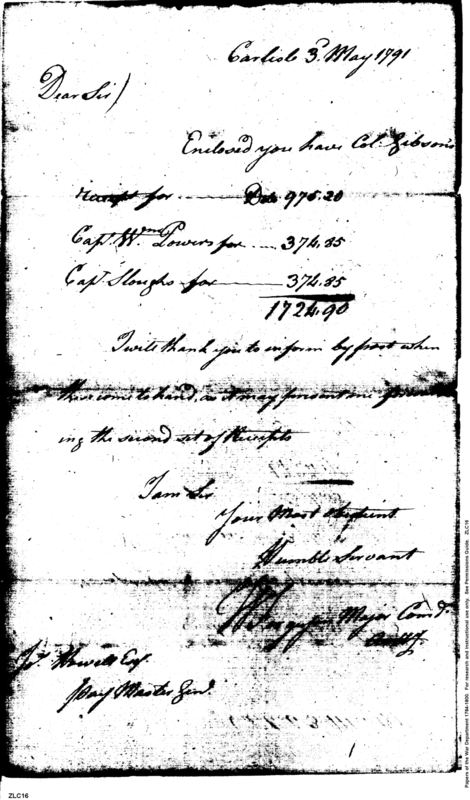 Carlisle 3d. May 1791
Dear Sir)
Enclosed you have Col: Gibson's
receipt for Dols 975.20
Capt. Wm. Powers for 374.85
Capt. Sloughs for 374.85
1724.90
I will thank you to inform by post when
these come to hand, as it may prevent me
ing the second set of Receipts
I am Sir
Your Most Obedient
Humble Servant
Major Comd.
Jos. Howell Esqr.
Pay Master Genl.
ZLC16
Papers of the War Department 1784-1800. For research and instructional use only. See Permissions Guide. ZLC16